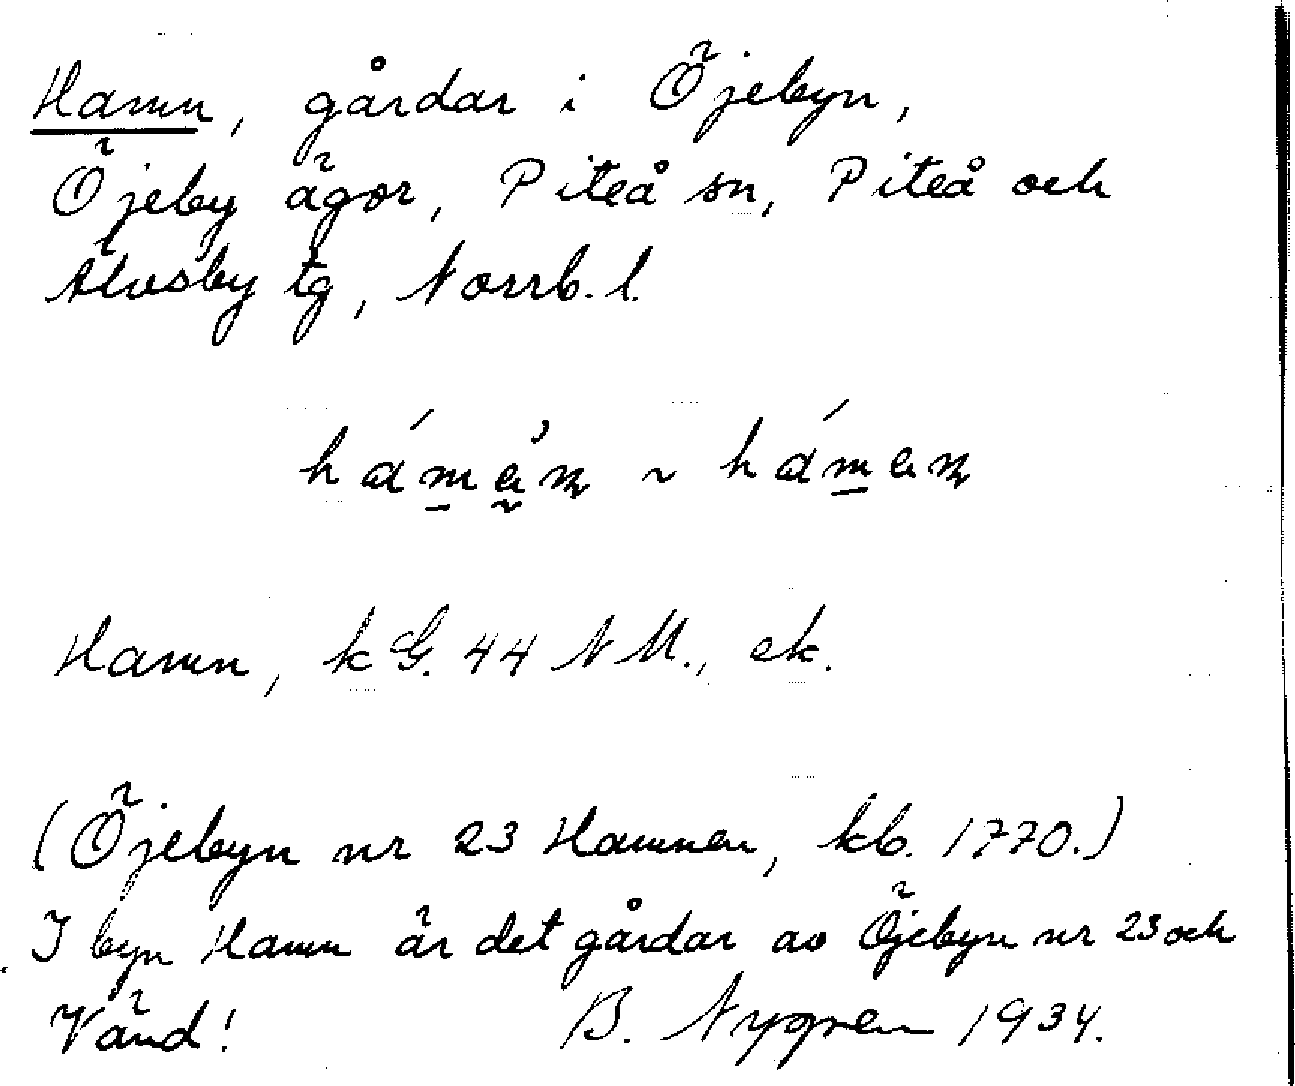 Hamn, gårdar i Öjebyn,
Öjeby ägor, Piteå sn, Piteå och
Älvsby tg, Norrb. l.
hámän ~ háman
Hamn, kG. 44 NM., ek.
(Öjebyn nr 23 Hamnen, kb. 1770.)
I byn Hamn är det gårdar av Öjebyn nr 23 och
Vänd! B. Nygren 1934.